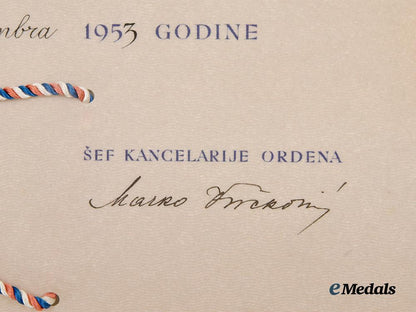 mbra 1953 GODINE
ŠEF KANCELARIJE ORDENA
Marko Vučković
eMedals